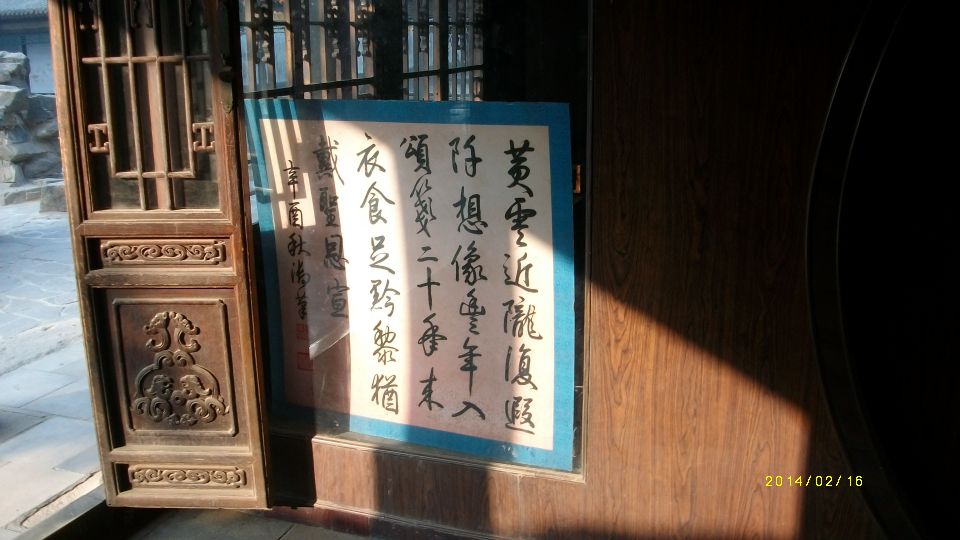 黄雲近隴復遐
阡想像豊年入
頌箋二十年来
衣食足黔黎猶
戴聖恩宣
辛酉秋
2014/02/16